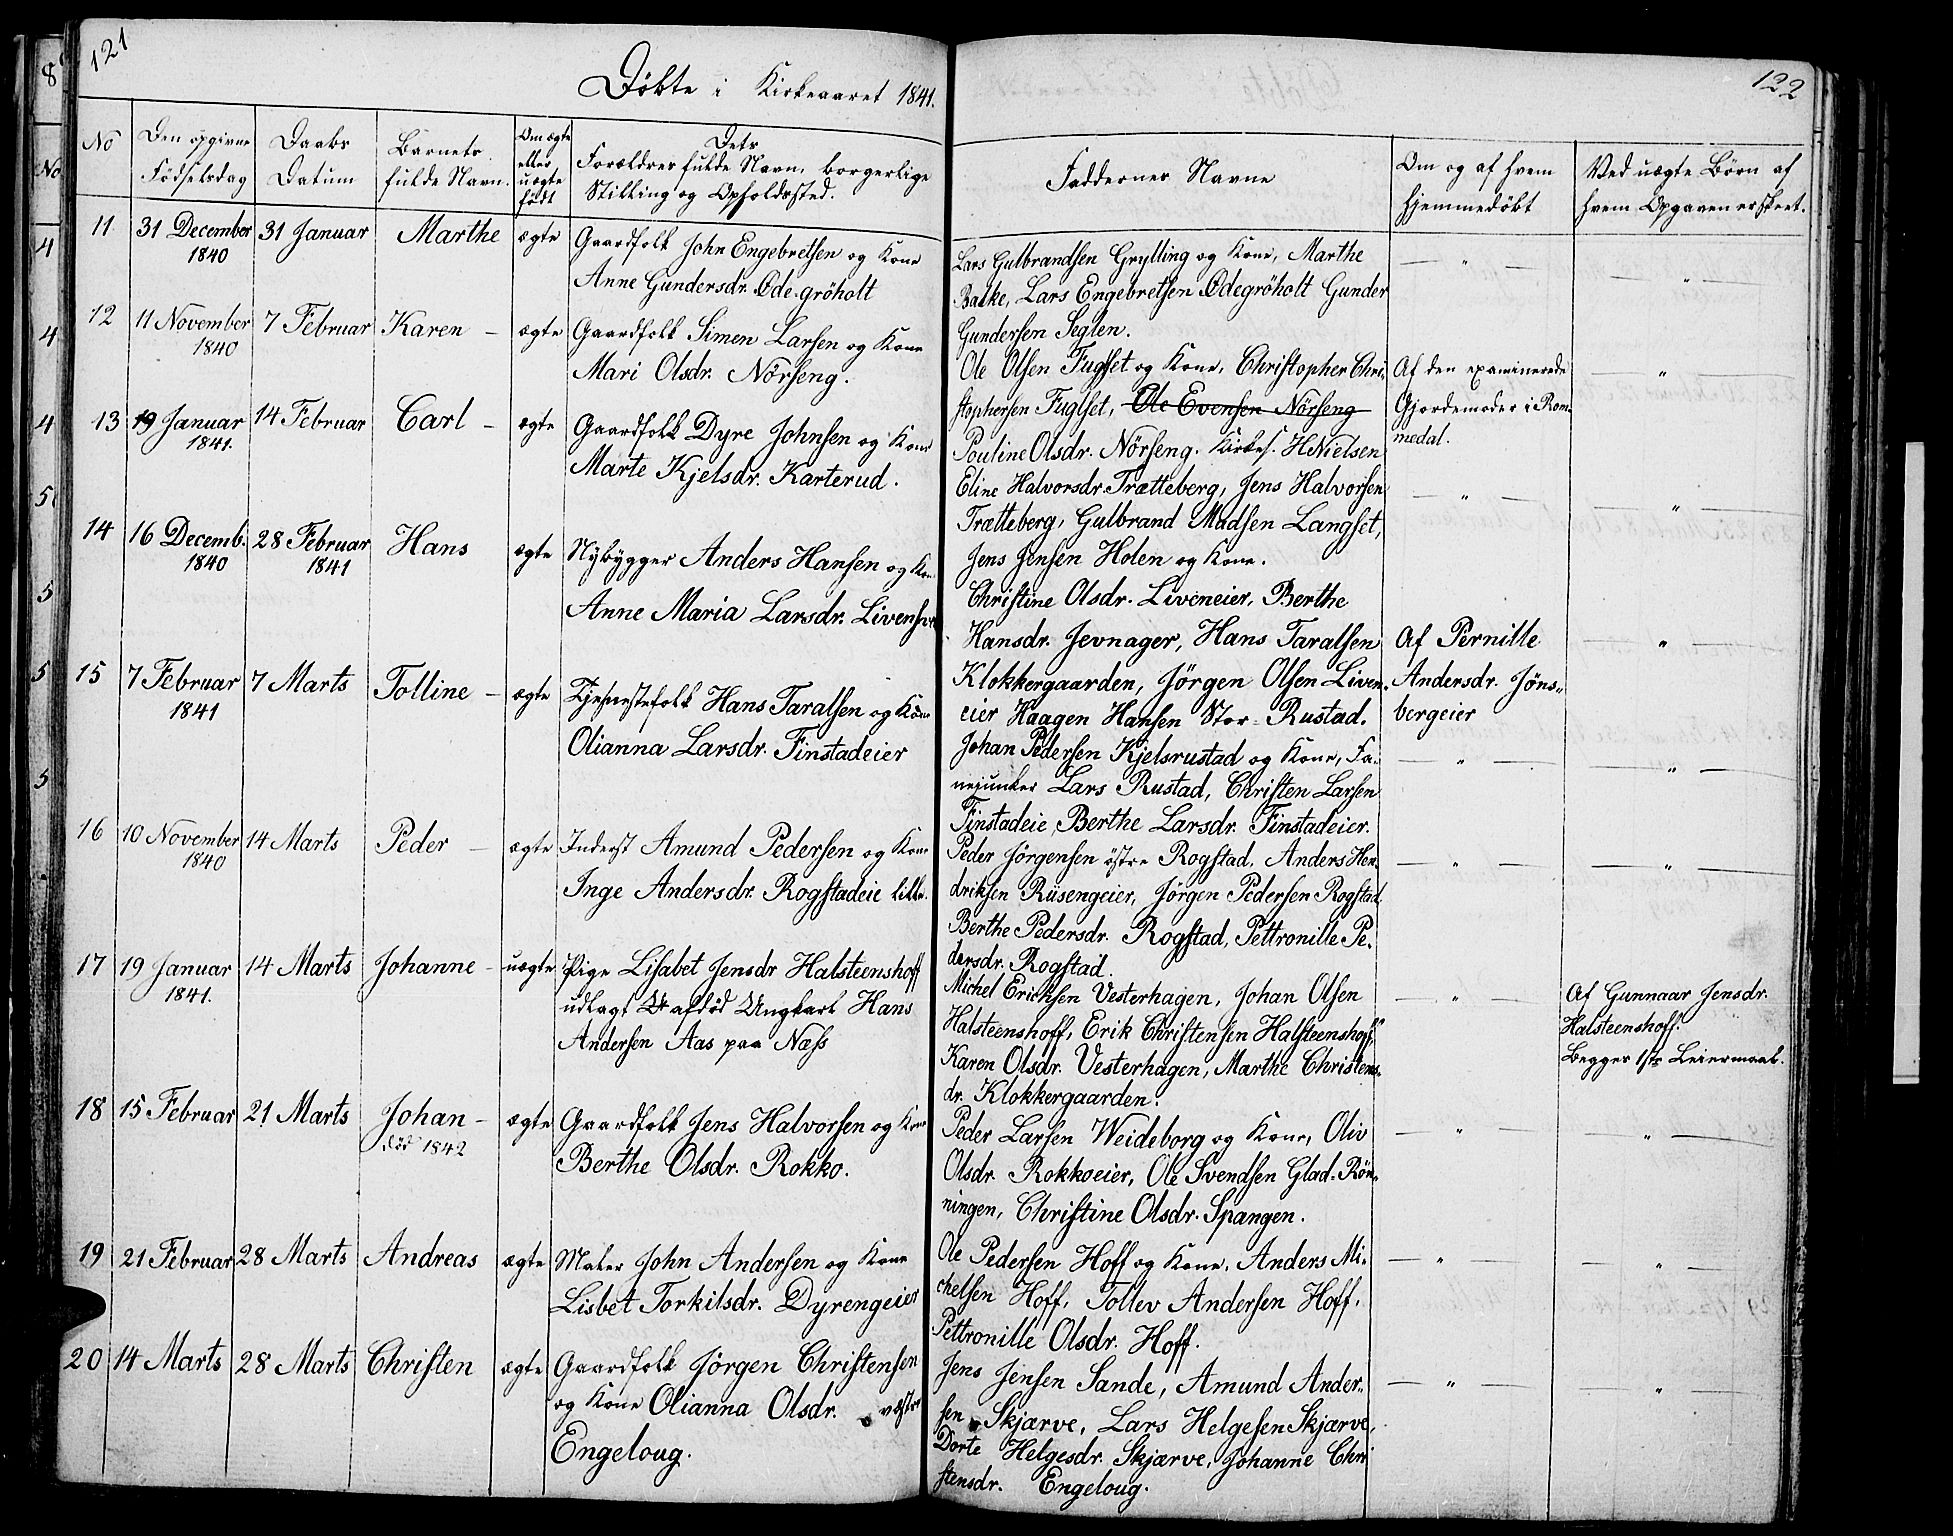 121
Døbte i Kirkeaaret 1841.
No
Den opgivne
Fødselsdag
Daabs
Datum
Barnets
fulde Navn.
Om ægte
eller
uægte
født
Dets
Forældres fulde Navn, borgerlige
Stilling og Opholdssted.
11
31 December
1840
31 Januar
Marthe
ægte
Gaardfolk John Engebretsen og Kone
Anne Gundersdr. Ødegröholt
12
11 November
1840
7 Februar
Karen –
ægte
Gaardfolk Simen Larsen og Kone
Mari Olsdr. Nörseng.
13
19 Januar
1841.
14 Februar
Carl –
ægte
Gaardfolk Dyre Johnsen og Kone
Marte Kjelsdr. Karterud.
14
16 Decemb.
1840
28 Februar
1841
Hans
ægte
Nybygger Anders Hansen og Kone
Anne Maria Larsdr.
15
7 Februar
1841
7 Marts
Tolline –
ægte
Tjenestefolk Hans Taralsen og Kone
Olianna Larsdr. Finstadeier
16
10 November
1840
14 Marts
Peder –
ægte
Inderst Amund Pedersen og Kone
Inge Andersdr. Rogstadeie lille.
17
19 Januar
1841.
14 Marts
Johanne –
uægte
Pige Lisabet Jensdr Halsteenshoff
udlagt afdød Ungkarl Hans
Andersen Aas paa Næss
18
15 Februar
21 Marts
Johan –
død 1842
ægte
Gaardfolk Jens Halvorsen og Kone
Berthe Olsdr. Rokko.
19
21 Februar
28 Marts
Andreas
ægte
Maler John Andersen og Kone
Lisbet Torkilsdr. Dyrengeier
20
14 Marts
28 Marts
Christen
ægte
Gaardfolk Jörgen Christensen
og Kone Olianna Olsdr. vestre
Engeloug.
122
Faddernes Navne
Om og af hvem
hjemmedøbt
Ved uægte Børn af
hvem Opgaven er skeet.
Lars Gulbrandsen Grylling og Kone, Marthe
Bakke, Lars Engebretsen Ødegröholt Gunder
Gundersen Seglen.
Ole Olsen Fuglset og Kone, Christopher Chri-
stophersen Fuglset, Ole Evensen Nörseng
Pouline Olsdr. Nörseng. Kirkes. H Nielsen
Af den examinerede
Gjordemoder i Rom-
medal.
Eline Halvorsdr. Trætteberg, Jens Halvorsen
Trætteberg, Gulbrand Madsen Langset,
Jens Jensen Holen og Kone.
Christine Olsdr. Liveneier, Berthe
Hansdr. Jevnager, Hans Taralsen
Klokkergaarden, Jörgen Olsen Liven-
eier Haagen Hansen Stor-Rustad.
Af Pernille
Andersdr. Jöns-
bergeier
Johan Pedersen Kjelsrustad og Kone, Fa-
nejunker Lars Rustad, Christen Larsen
Finstadeie, Berthe Larsdr. Finstadeier.
Peder Jörgensen östre Rogstad, Anders Hen-
driksen Rüsengeier, Jörgen Pedersen Rogstad,
Berthe Pedersdr. Rogstad, Pettronille Pe-
dersdr. Rogstad.
Michel Erichsen Vesterhagen, Johan Olsen
Halsteenshoff, Erik Christensen Halsteenshoff,
Karen Olsdr. Vesterhagen, Marthe Christens-
dr. Klokkergaarden.
Af Gunnaar Jensdr.
Halsteenshoff.
Begges 1ste Leiermaal.
Peder Larsen Weideborg og Kone, Oliv
Olsdr. Rokkoeier, Ole Svendsen Glad-Rön-
ningen, Christine Olsdr. Spangen.
Ole Pedersen Hoff og Kone, Anders Mi-
chelsen Hoff, Tollev Andersen Hoff,
Pettronille Olsdr. Hoff.
Jens Jensen Sande, Amund Ander-
sen Skjærve, Lars Helgesen Skjærve,
Dorte Helgesdr. Skjærve, Johanne Chri
stensdr. Engeloug.